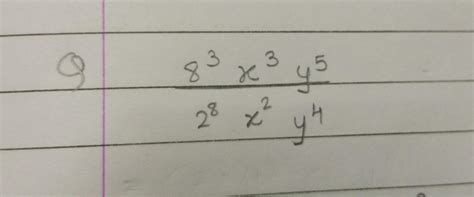 Q 8³ x³ y⁵
2⁸ x² y⁴